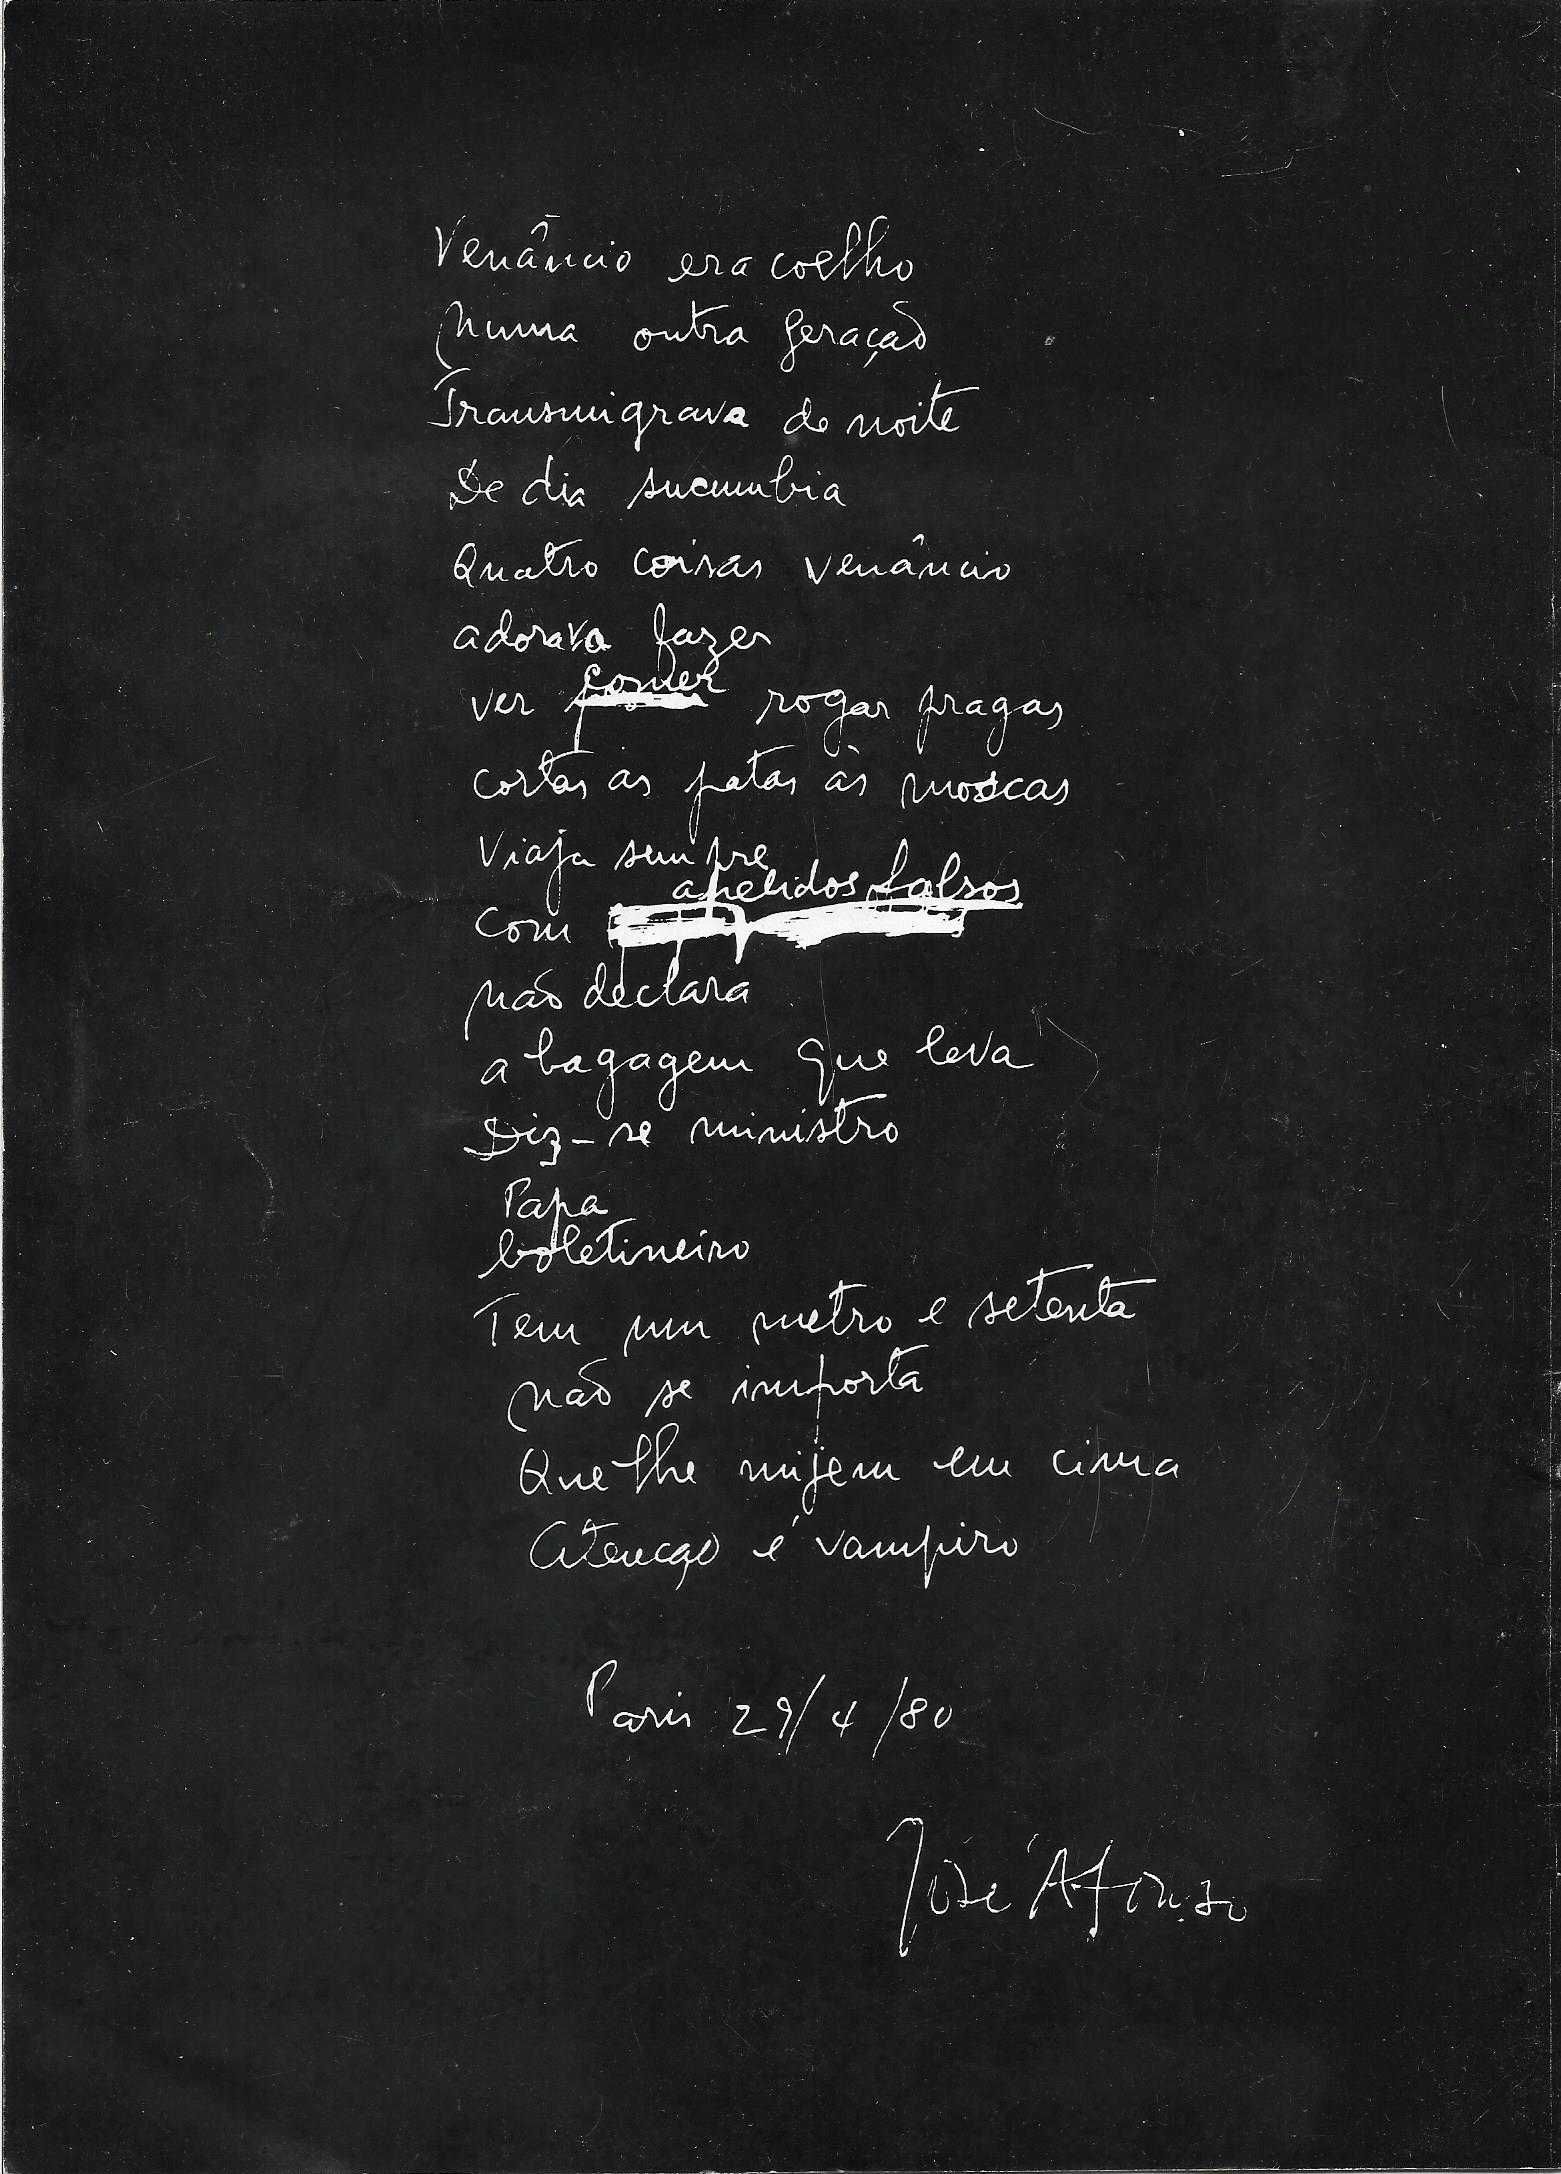 Venâncio era coelho
Numa outra geração
Transmigrava de noite
De dia sucumbia
Quatro coisas Venâncio
adorava fazer
ver comer rogar pragas
cortar as patas às moscas
Viaja sempre
com apelidos falsos
não declara
a bagagem que leva
Diz-se ministro
Papa
boletineiro
Tem um metro e setenta
não se importa
Que lhe mijem em cima
Atenção é vampiro
Paris 29/4/80
José Afonso